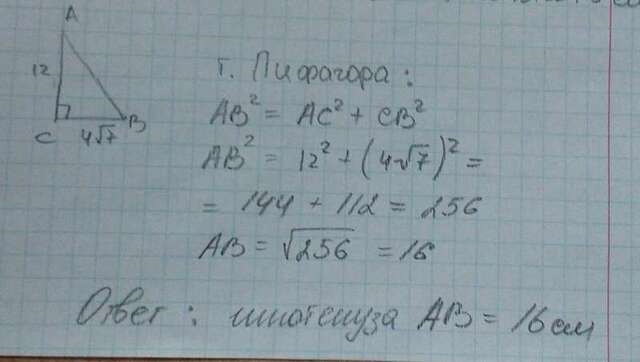 A
12
C
4√7
B
т. Пифагора:
AB² = AC² + CB²
AB² = 12² + (4√7)² =
= 144 + 112 = 256
AB = √256 = 16
Ответ: гипотенуза AB = 16 см